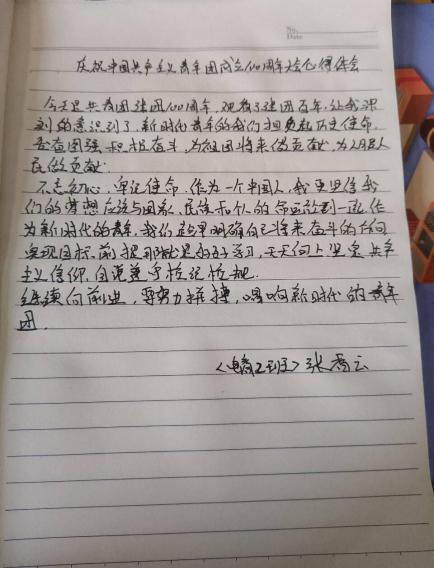 No.
Date
庆祝中国共产主义青年团成立100周年大会心得体会
今天是共青团建团100周年,观看了建团百年,让我深
刻的意识到了,新时代青年的我们担负起历史使命,
发奋图强,积极奋斗,为祖国将来做贡献,为人民
民做贡献.
不忘初心,牢记使命,作为一个中国人,我更坚信我
们的梦想应该与国家、民族和个人的命运放到一起,作
为新时代的青年,我们应尽早明确自己将来奋斗的方向
实现目标,前提那就是好好学习,天天向上坚定共产
主义信仰,自觉遵守校记校规.
继续向前进,要努力拼搏,唱响新时代的青年
团.
<电商2班>张秀云